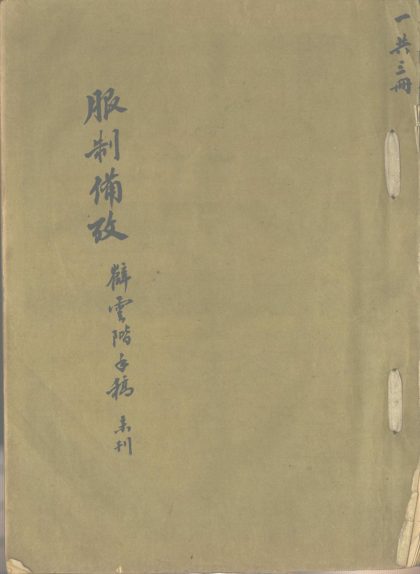 一共三冊
服制備攷 薛雲階手稿 未刊